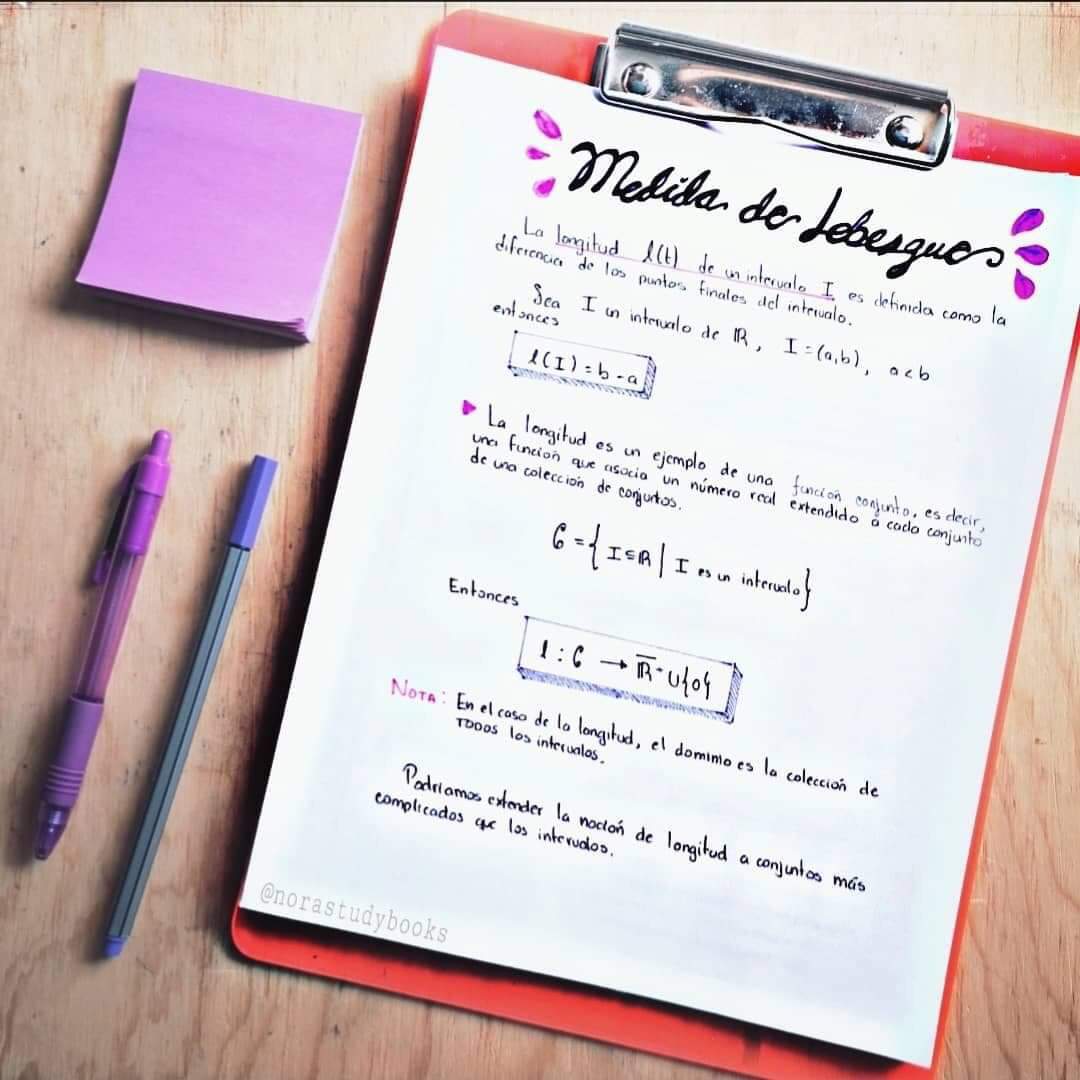 Medida de Lebesgue
La longitud l(t) de un intervalo I es definida como la
diferencia de los puntos finales del intervalo.
Sea I un intervalo de ℝ, I=(a,b), a<b
entonces
l(I)=b-a
La longitud es un ejemplo de una función conjunto, es decir,
una función que asocia un número real extendido a cada conjunto
de una colección de conjuntos.
C={I⊆ℝ | I es un intervalo}
Entonces
l:C → ℝ̅⁺∪{0}
NOTA: En el caso de la longitud, el dominio es la colección de
TODOS los intervalos.
Podriamos extender la noción de longitud a conjuntos más
complicados que los intervalos.
@norastudybooks